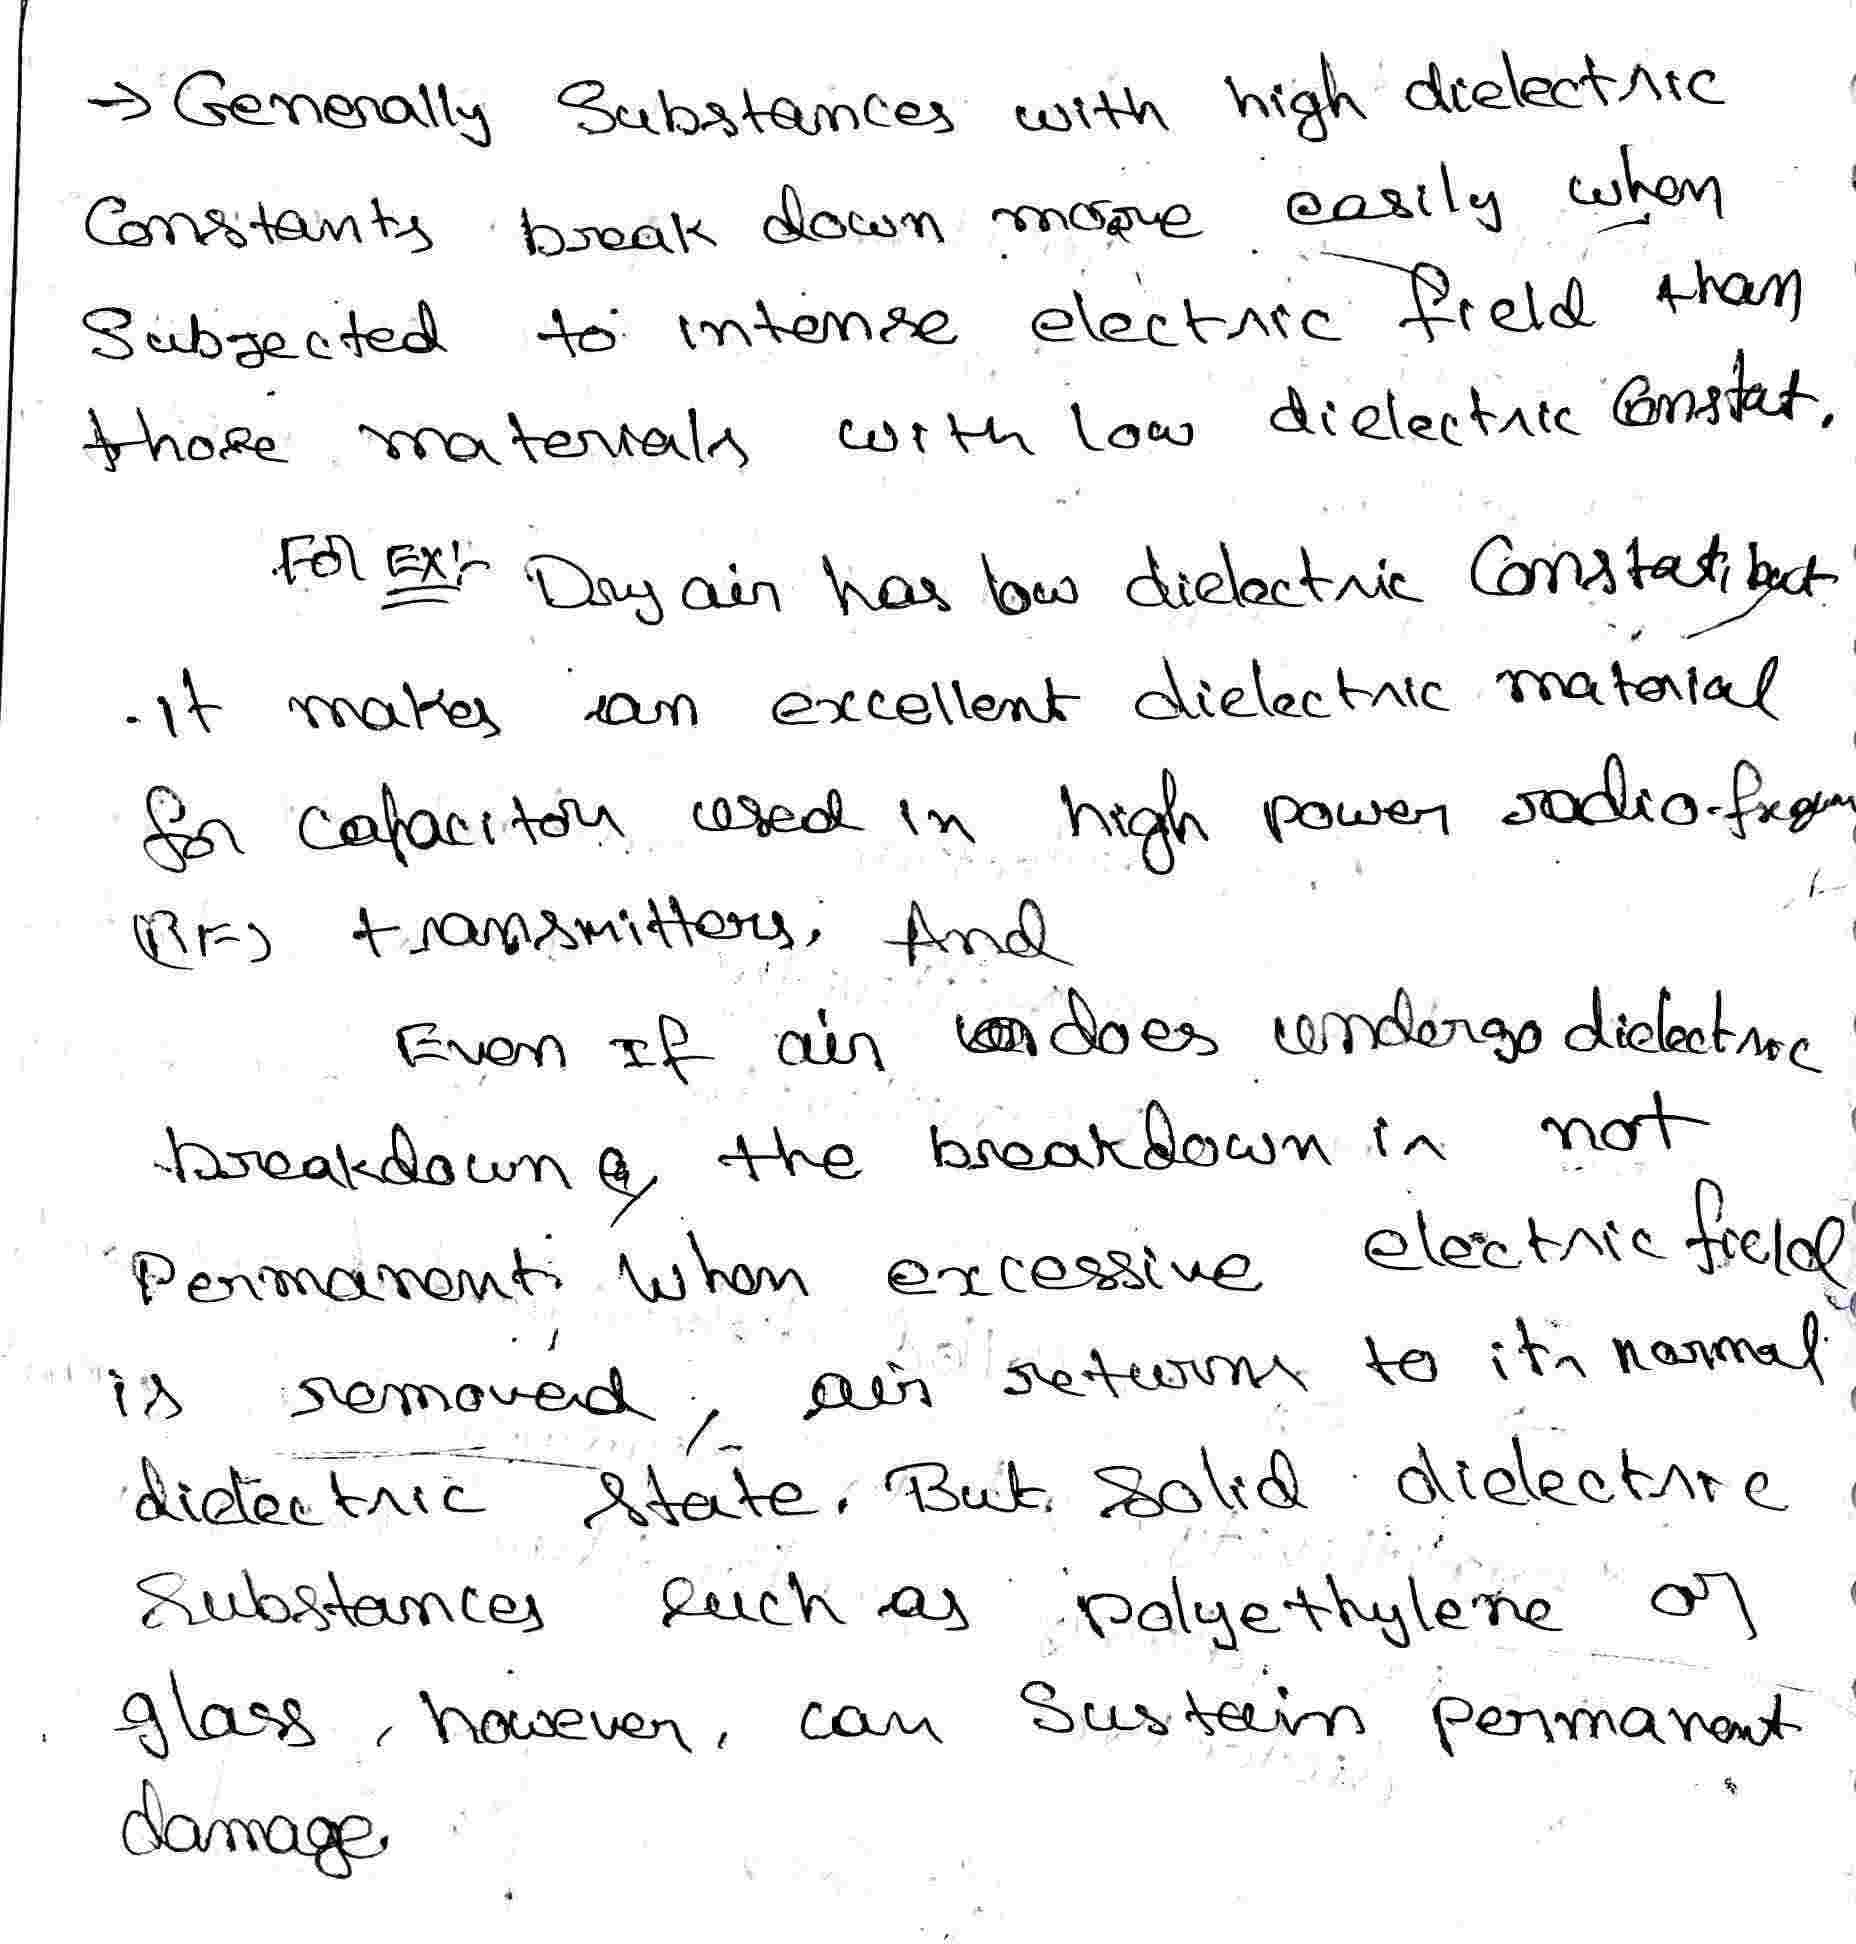 → Generally Substances with high dielectric
Constants break down more easily when
Subjected to intense electric field than
those materials with low dielectric Constat.
For EX:- Dry air has low dielectric Constat, but
it makes an excellent dielectric material
for capacitor used in high power radio-frequen
(RF) transmitters. And
Even If air does undergo dielectric
breakdown, the breakdown is not
Permanent. When excessive electric field
is removed, air returns to its normal
dielectric state. But Solid dielectric
Substances such as polyethylene or
glass, however, can Sustain permanent
damage.